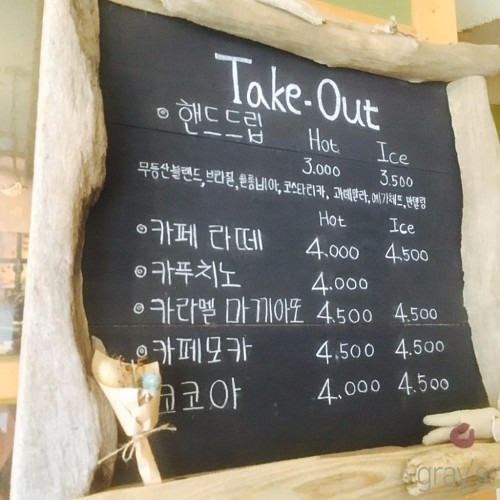 Take-Out
핸드드립 Hot Ice
3.000 3.500
무등산블랜드, 브라질, 콜롬비아, 코스타리카, 과테말라, 예가체프, 만델링
Hot Ice
카페 라떼 4.000 4.500
카푸치노 4.000
카라멜 마끼아또 4.500 4.500
카페모카 4.500 4.500
코코아 4.000 4.500
gray's